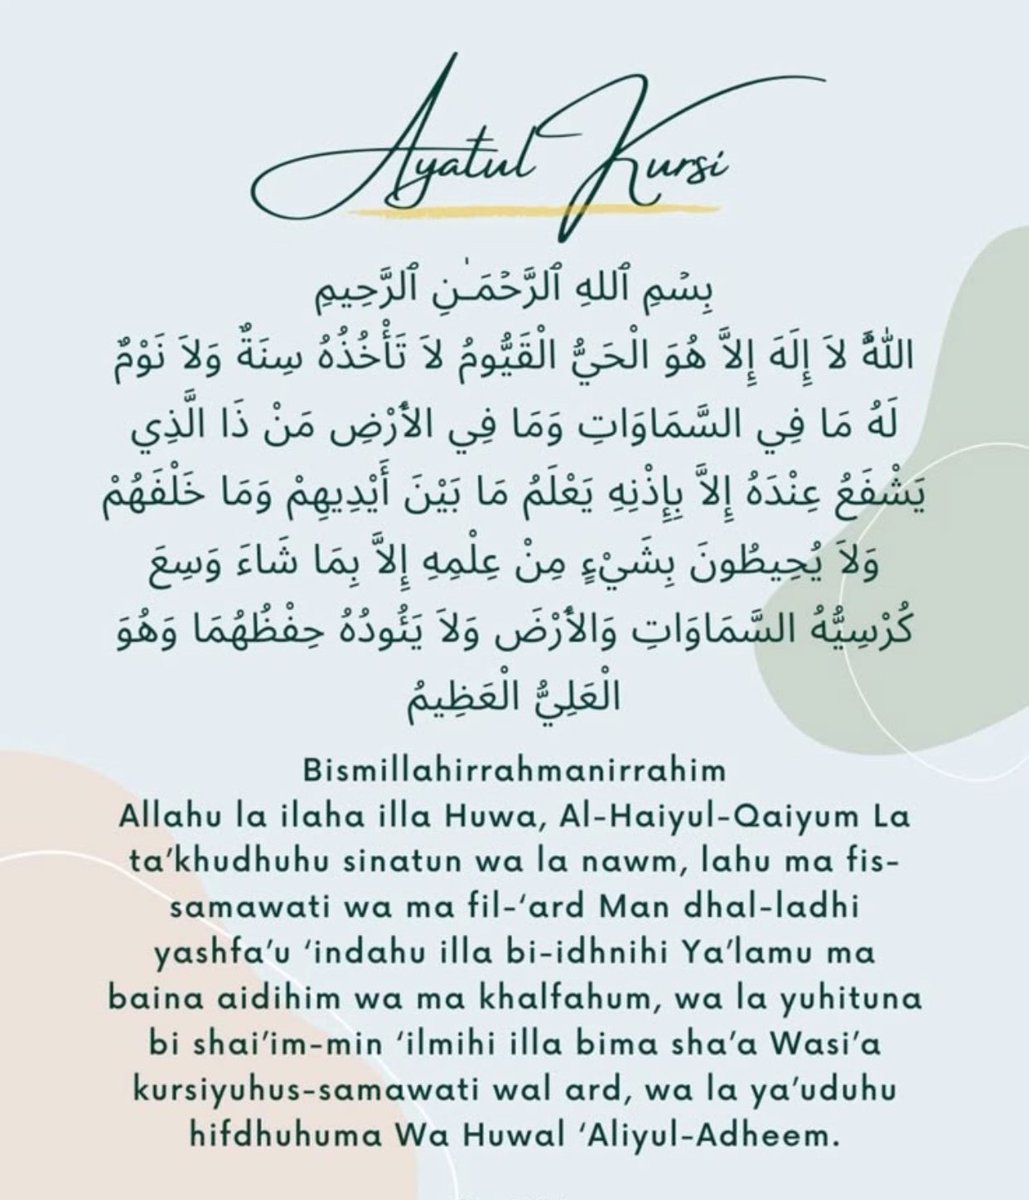 Ayatul Kursi
بِسْمِ ٱللهِ ٱلرَّحْمَـٰنِ ٱلرَّحِيمِ
اللهُ لاَ إِلَهَ إِلاَّ هُوَ الْحَيُّ الْقَيُّومُ لاَ تَأْخُذُهُ سِنَةٌ وَلاَ نَوْمٌ
لَهُ مَا فِي السَّمَاوَاتِ وَمَا فِي الأَرْضِ مَنْ ذَا الَّذِي
يَشْفَعُ عِنْدَهُ إِلاَّ بِإِذْنِهِ يَعْلَمُ مَا بَيْنَ أَيْدِيهِمْ وَمَا خَلْفَهُمْ
وَلاَ يُحِيطُونَ بِشَيْءٍ مِنْ عِلْمِهِ إِلاَّ بِمَا شَاءَ وَسِعَ
كُرْسِيُّهُ السَّمَاوَاتِ وَالأَرْضَ وَلاَ يَئُودُهُ حِفْظُهُمَا وَهُوَ
الْعَلِيُّ الْعَظِيمُ
Bismillahirrahmanirrahim
Allahu la ilaha illa Huwa, Al-Haiyul-Qaiyum La
ta’khudhuhu sinatun wa la nawm, lahu ma fis-
samawati wa ma fil-‘ard Man dhal-ladhi
yashfa’u ‘indahu illa bi-idhnihi Ya’lamu ma
baina aidihim wa ma khalfahum, wa la yuhituna
bi shai’im-min ‘ilmihi illa bima sha’a Wasi’a
kursiyuhus-samawati wal ard, wa la ya’uduhu
hifdhuhuma Wa Huwal ‘Aliyul-Adheem.